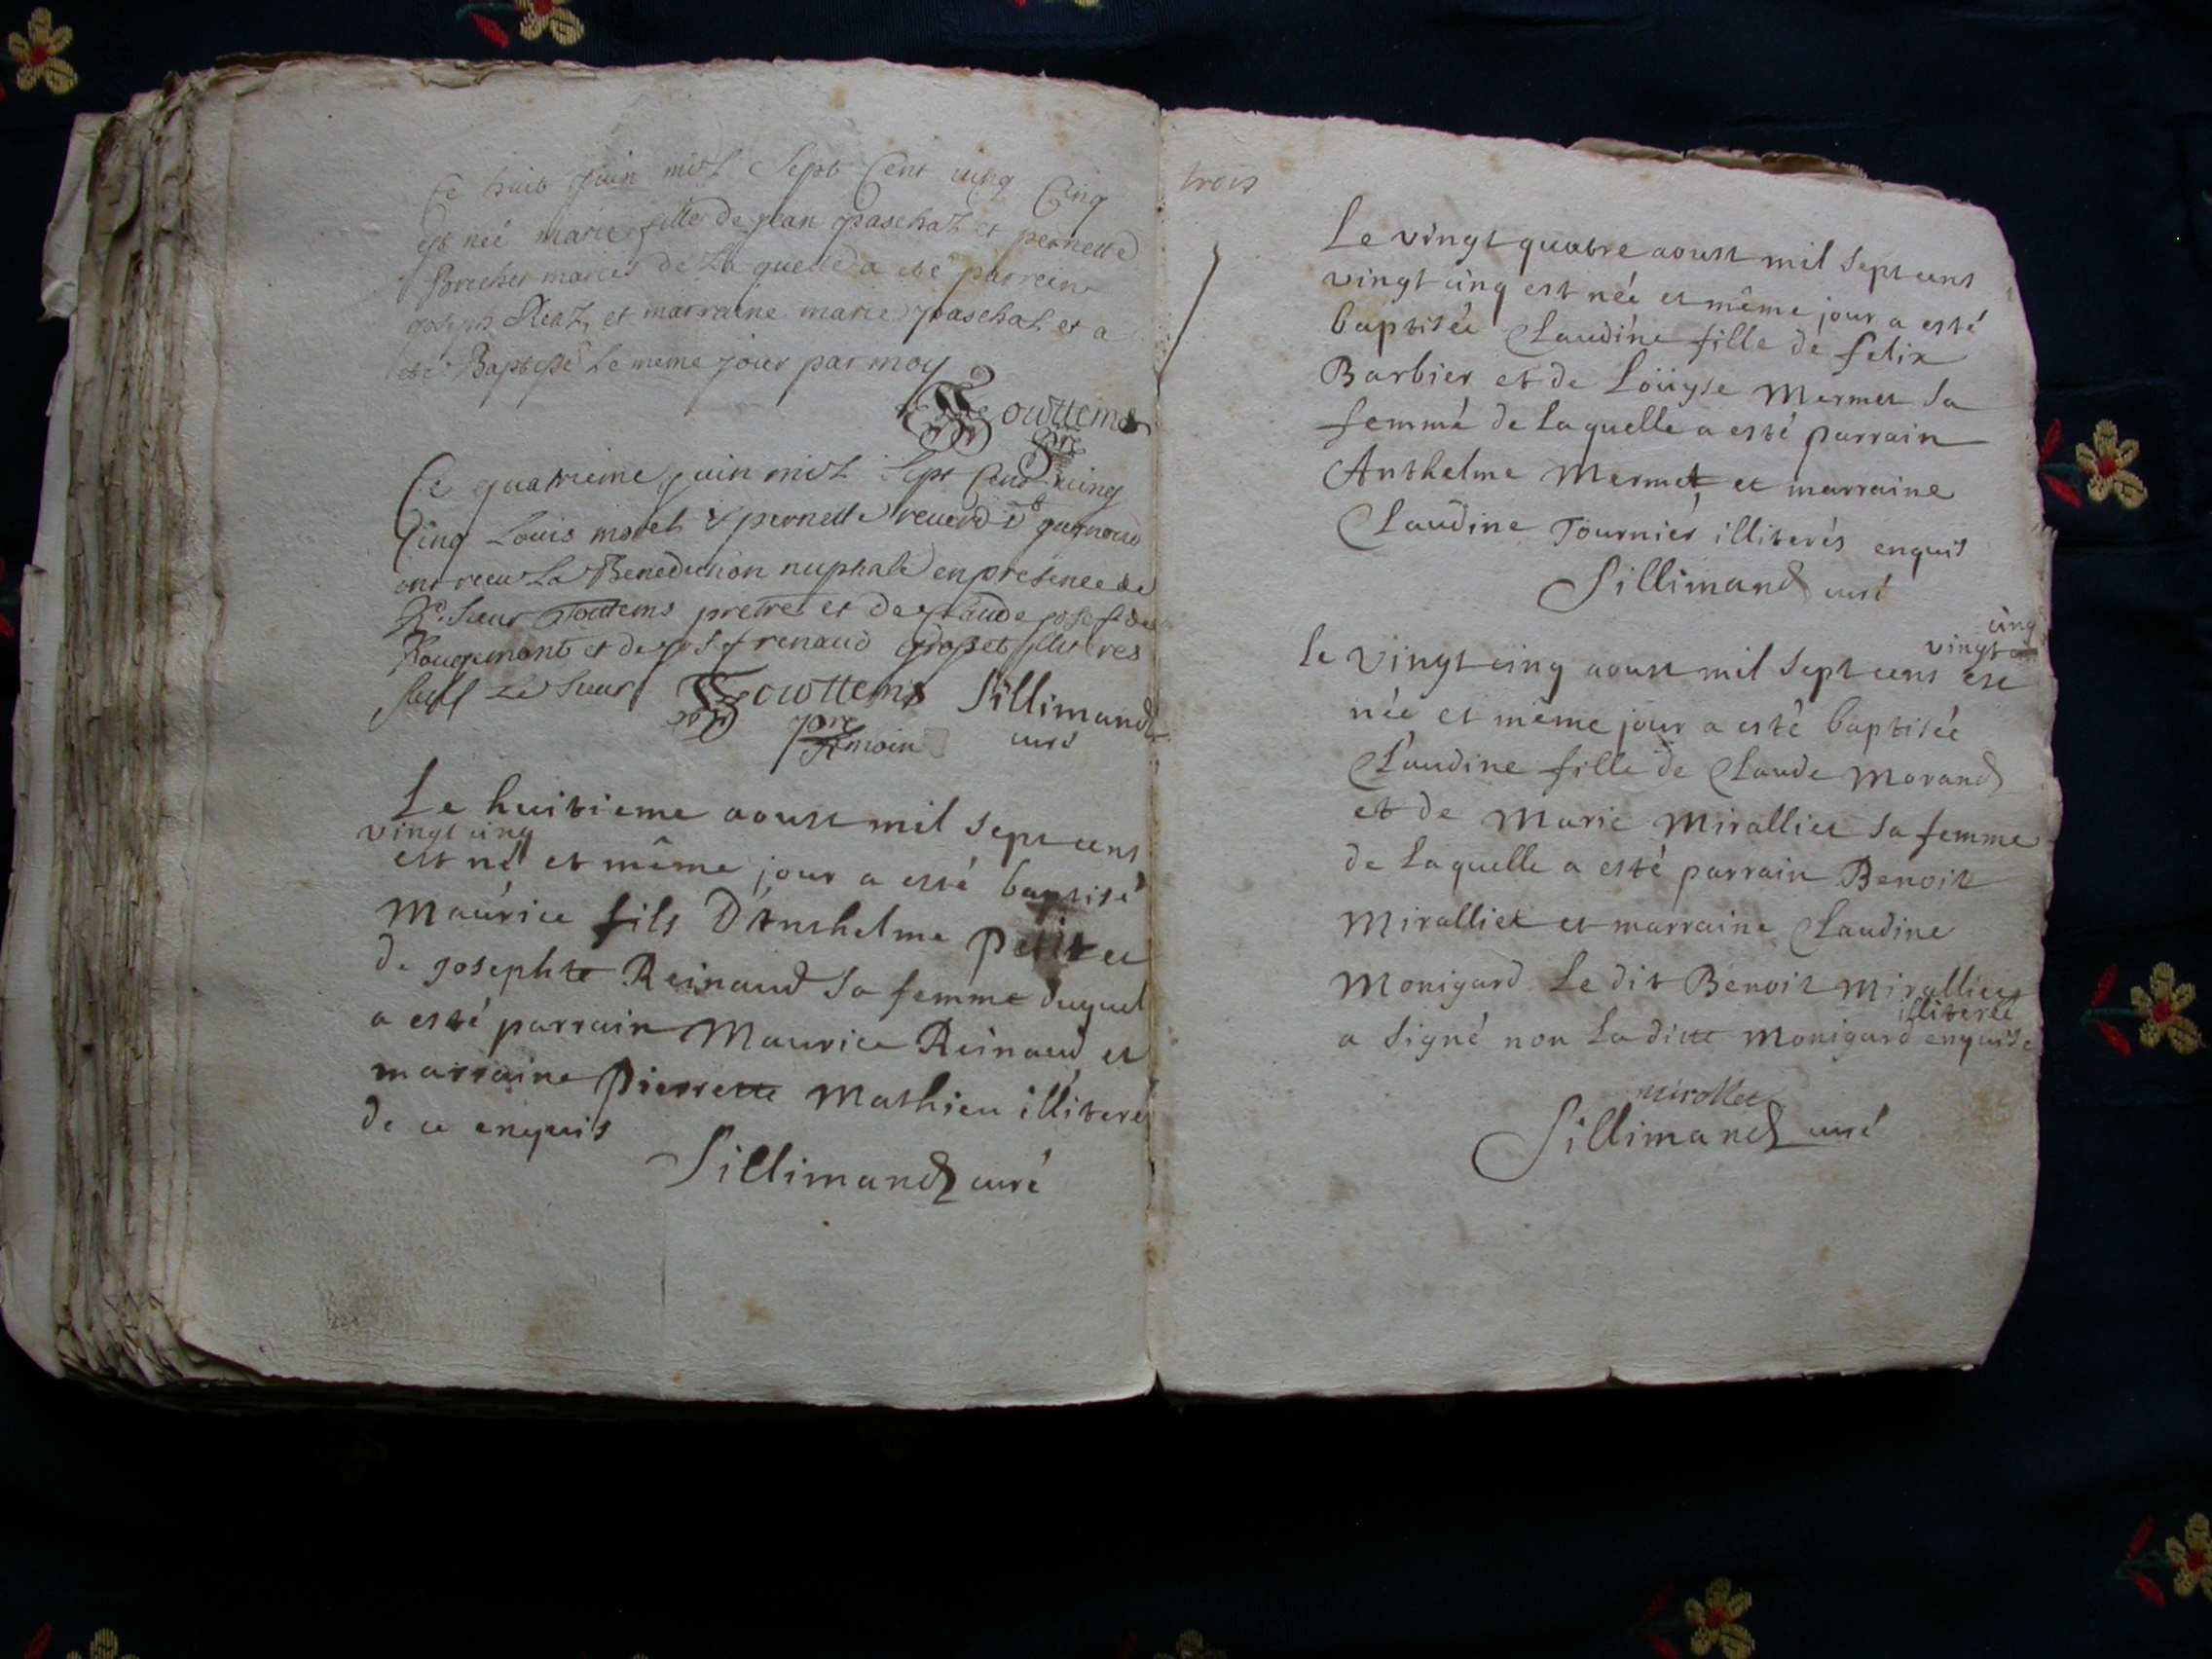 Ce huit juin mil Sept Cent vingt Cinq
est neé marie fille de jean paschal et pernette
mariés de La quelle a eté parrein
et marraine marie paschal et a
eté Baptisé Le meme jour par moy
Towttems
pre
Ce quatrieme juin mil Sept Cent vingt
Cinq Louis morel & pernette
ont receu La Benediction nuptiale en presence de
Sieur Touttems pretre et de Claude josef de
Rougemont et de josf renaud
sauf Le Sieur Towttems Sillimand
pre témoin curé
Le huitieme aoust mil sept cens
vingt cinq
est né et même jour a esté baptisé
Maurice fils D'Anthelme Petit et
de josephte Reinaud sa femme duquel
a esté parrain Maurice Reinaud et
marraine Pierrette Mathieu illiterés
de ce enquis
Sillimand curé
trois
Le vingt quatre aoust mil sept cens
vingt cinq est née et même jour a esté
baptisée Claudine fille de felix
Barbier et de Loüyse Mermet sa
femme de laquelle a esté parrain
Anthelme Mermet et marraine
Claudine Tournier illiterés enquis
Sillimand curé
cinq
vingt
le vingt cinq aoust mil sept cens est
née et même jour a esté baptisée
Claudine fille de Claude Morand
et de Marie Miralliet sa femme
de laquelle a esté parrain Benoit
Miralliet et marraine Claudine
Monigard Le dit Benoit Miralliet
illiterée
a signé non Laditte Monigard enquise
mirallet
Sillimand curé